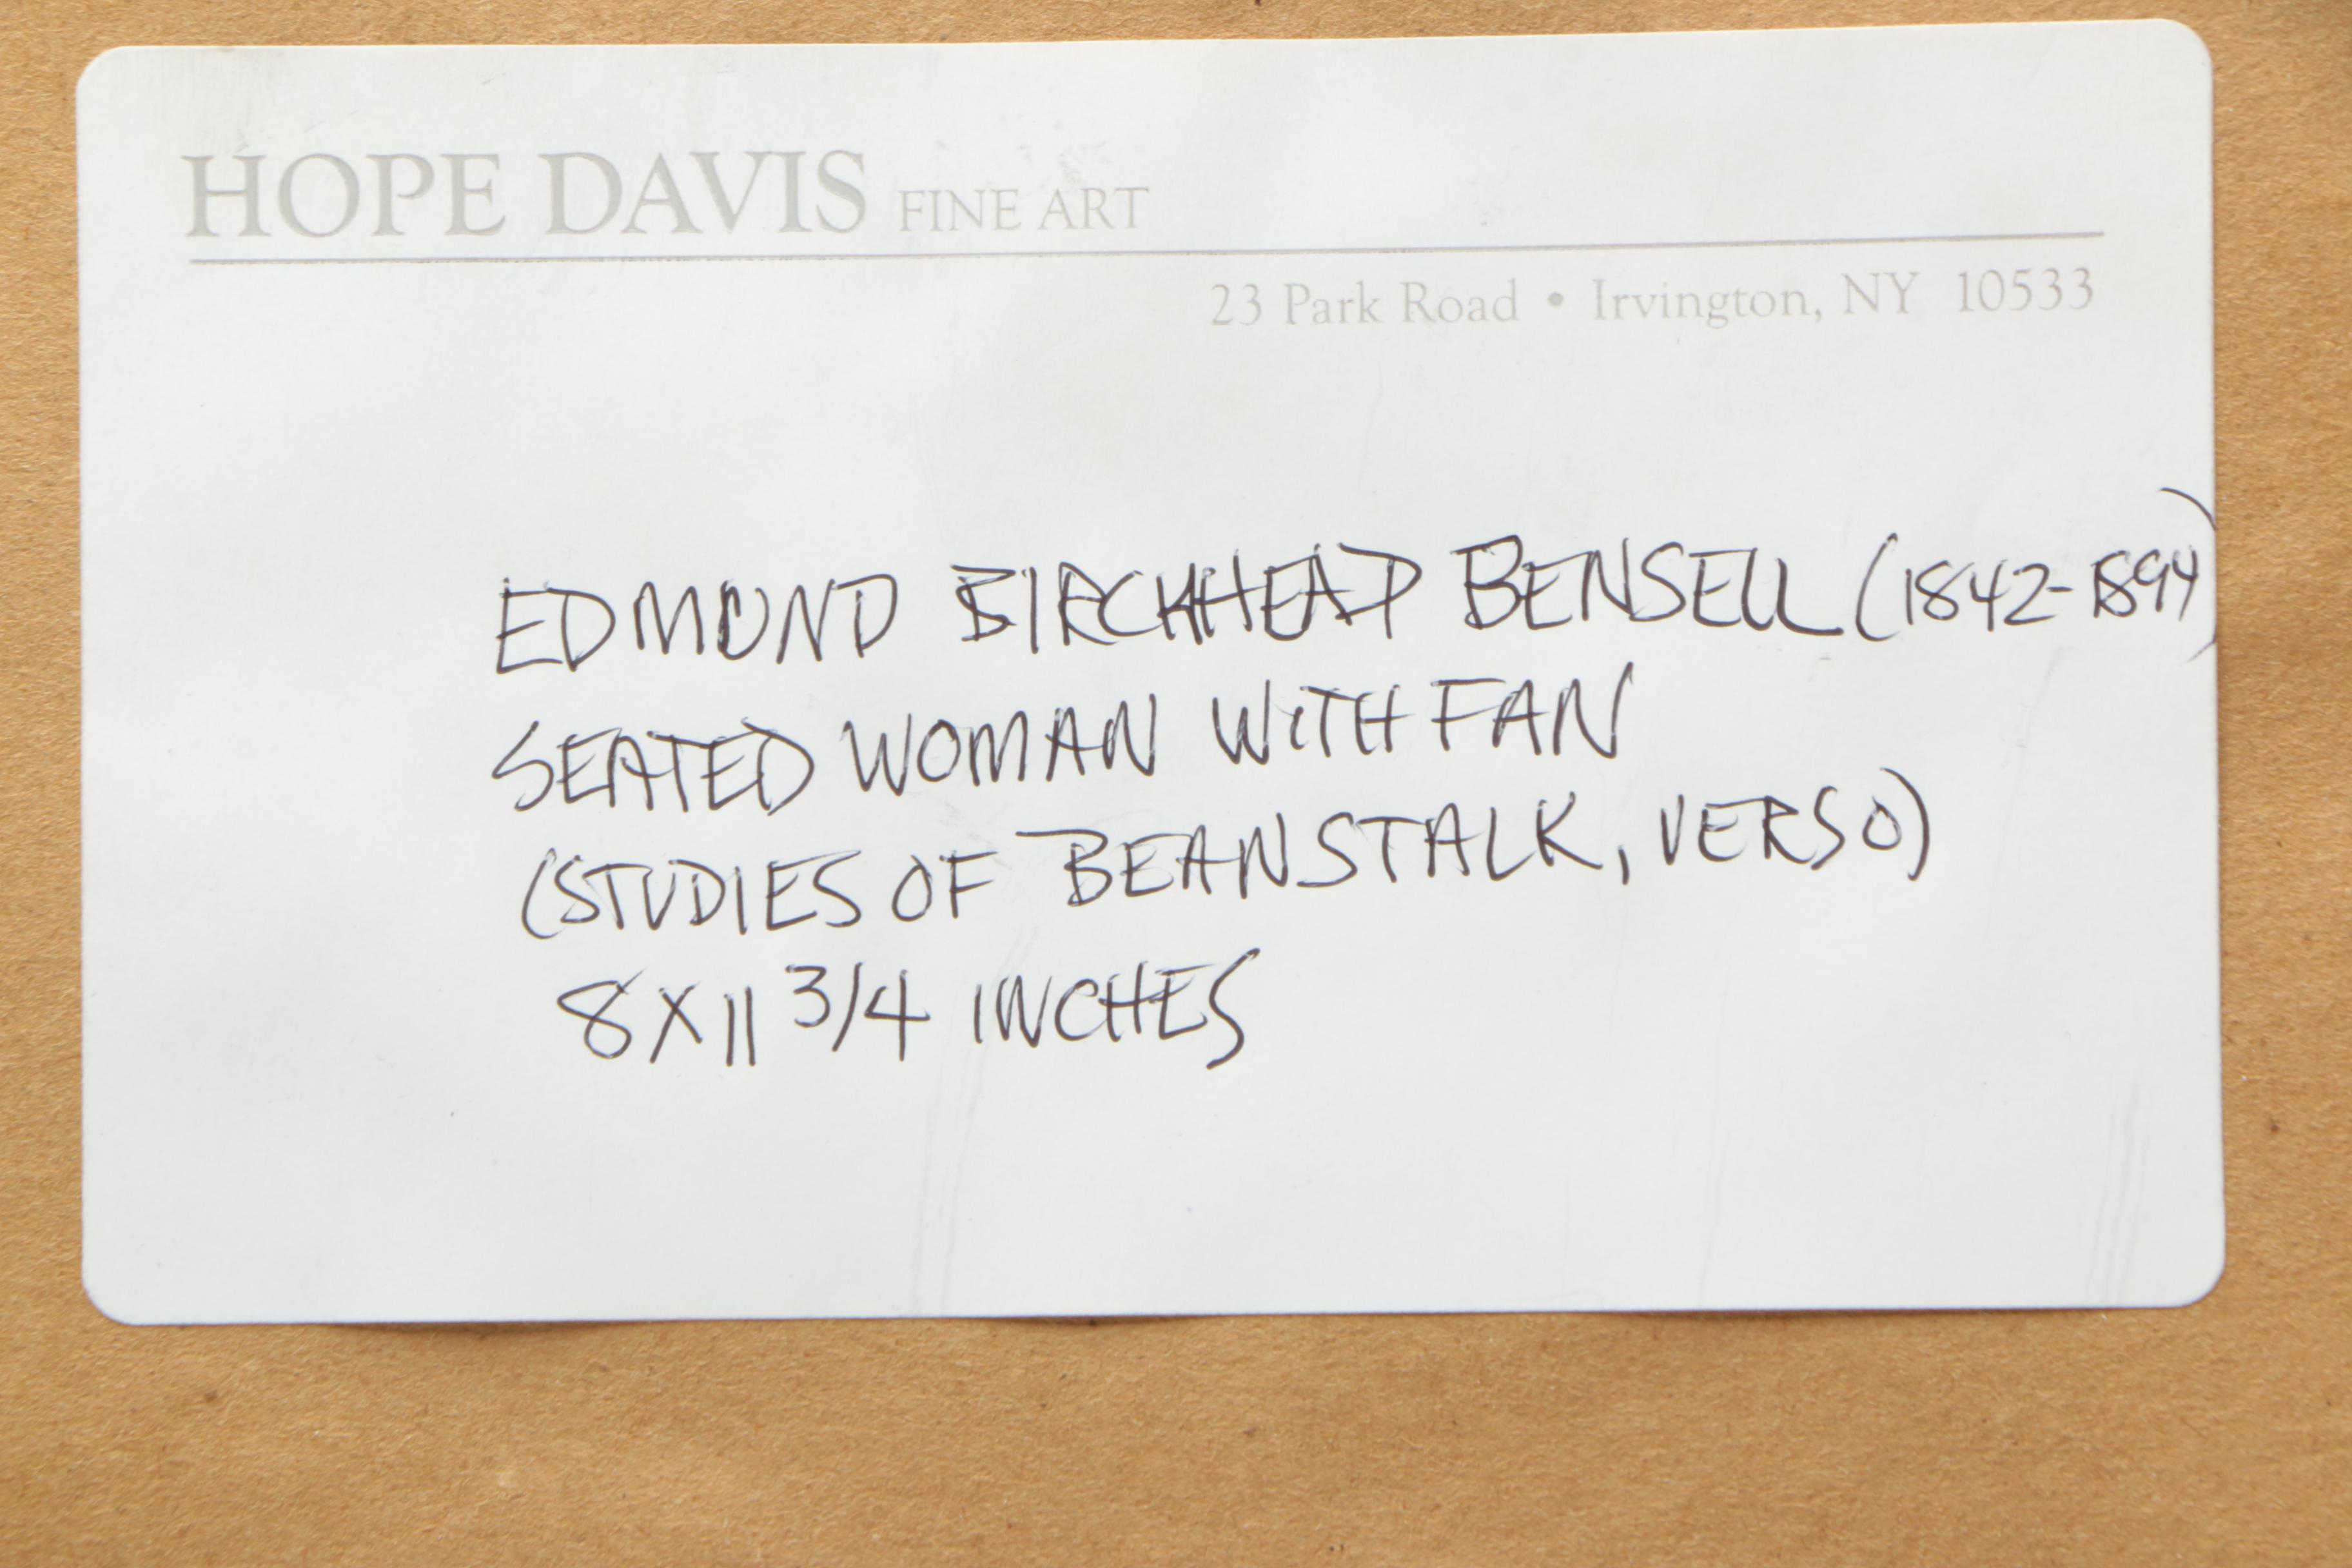 HOPE DAVIS FINE ART
23 Park Road • Irvington, NY 10533
EDMUND BIRCKHEAD BENSELL (1842-1894)
SEATED WOMAN WITH FAN
(STUDIES OF BEANSTALK, VERSO)
8 X 11 3/4 INCHES